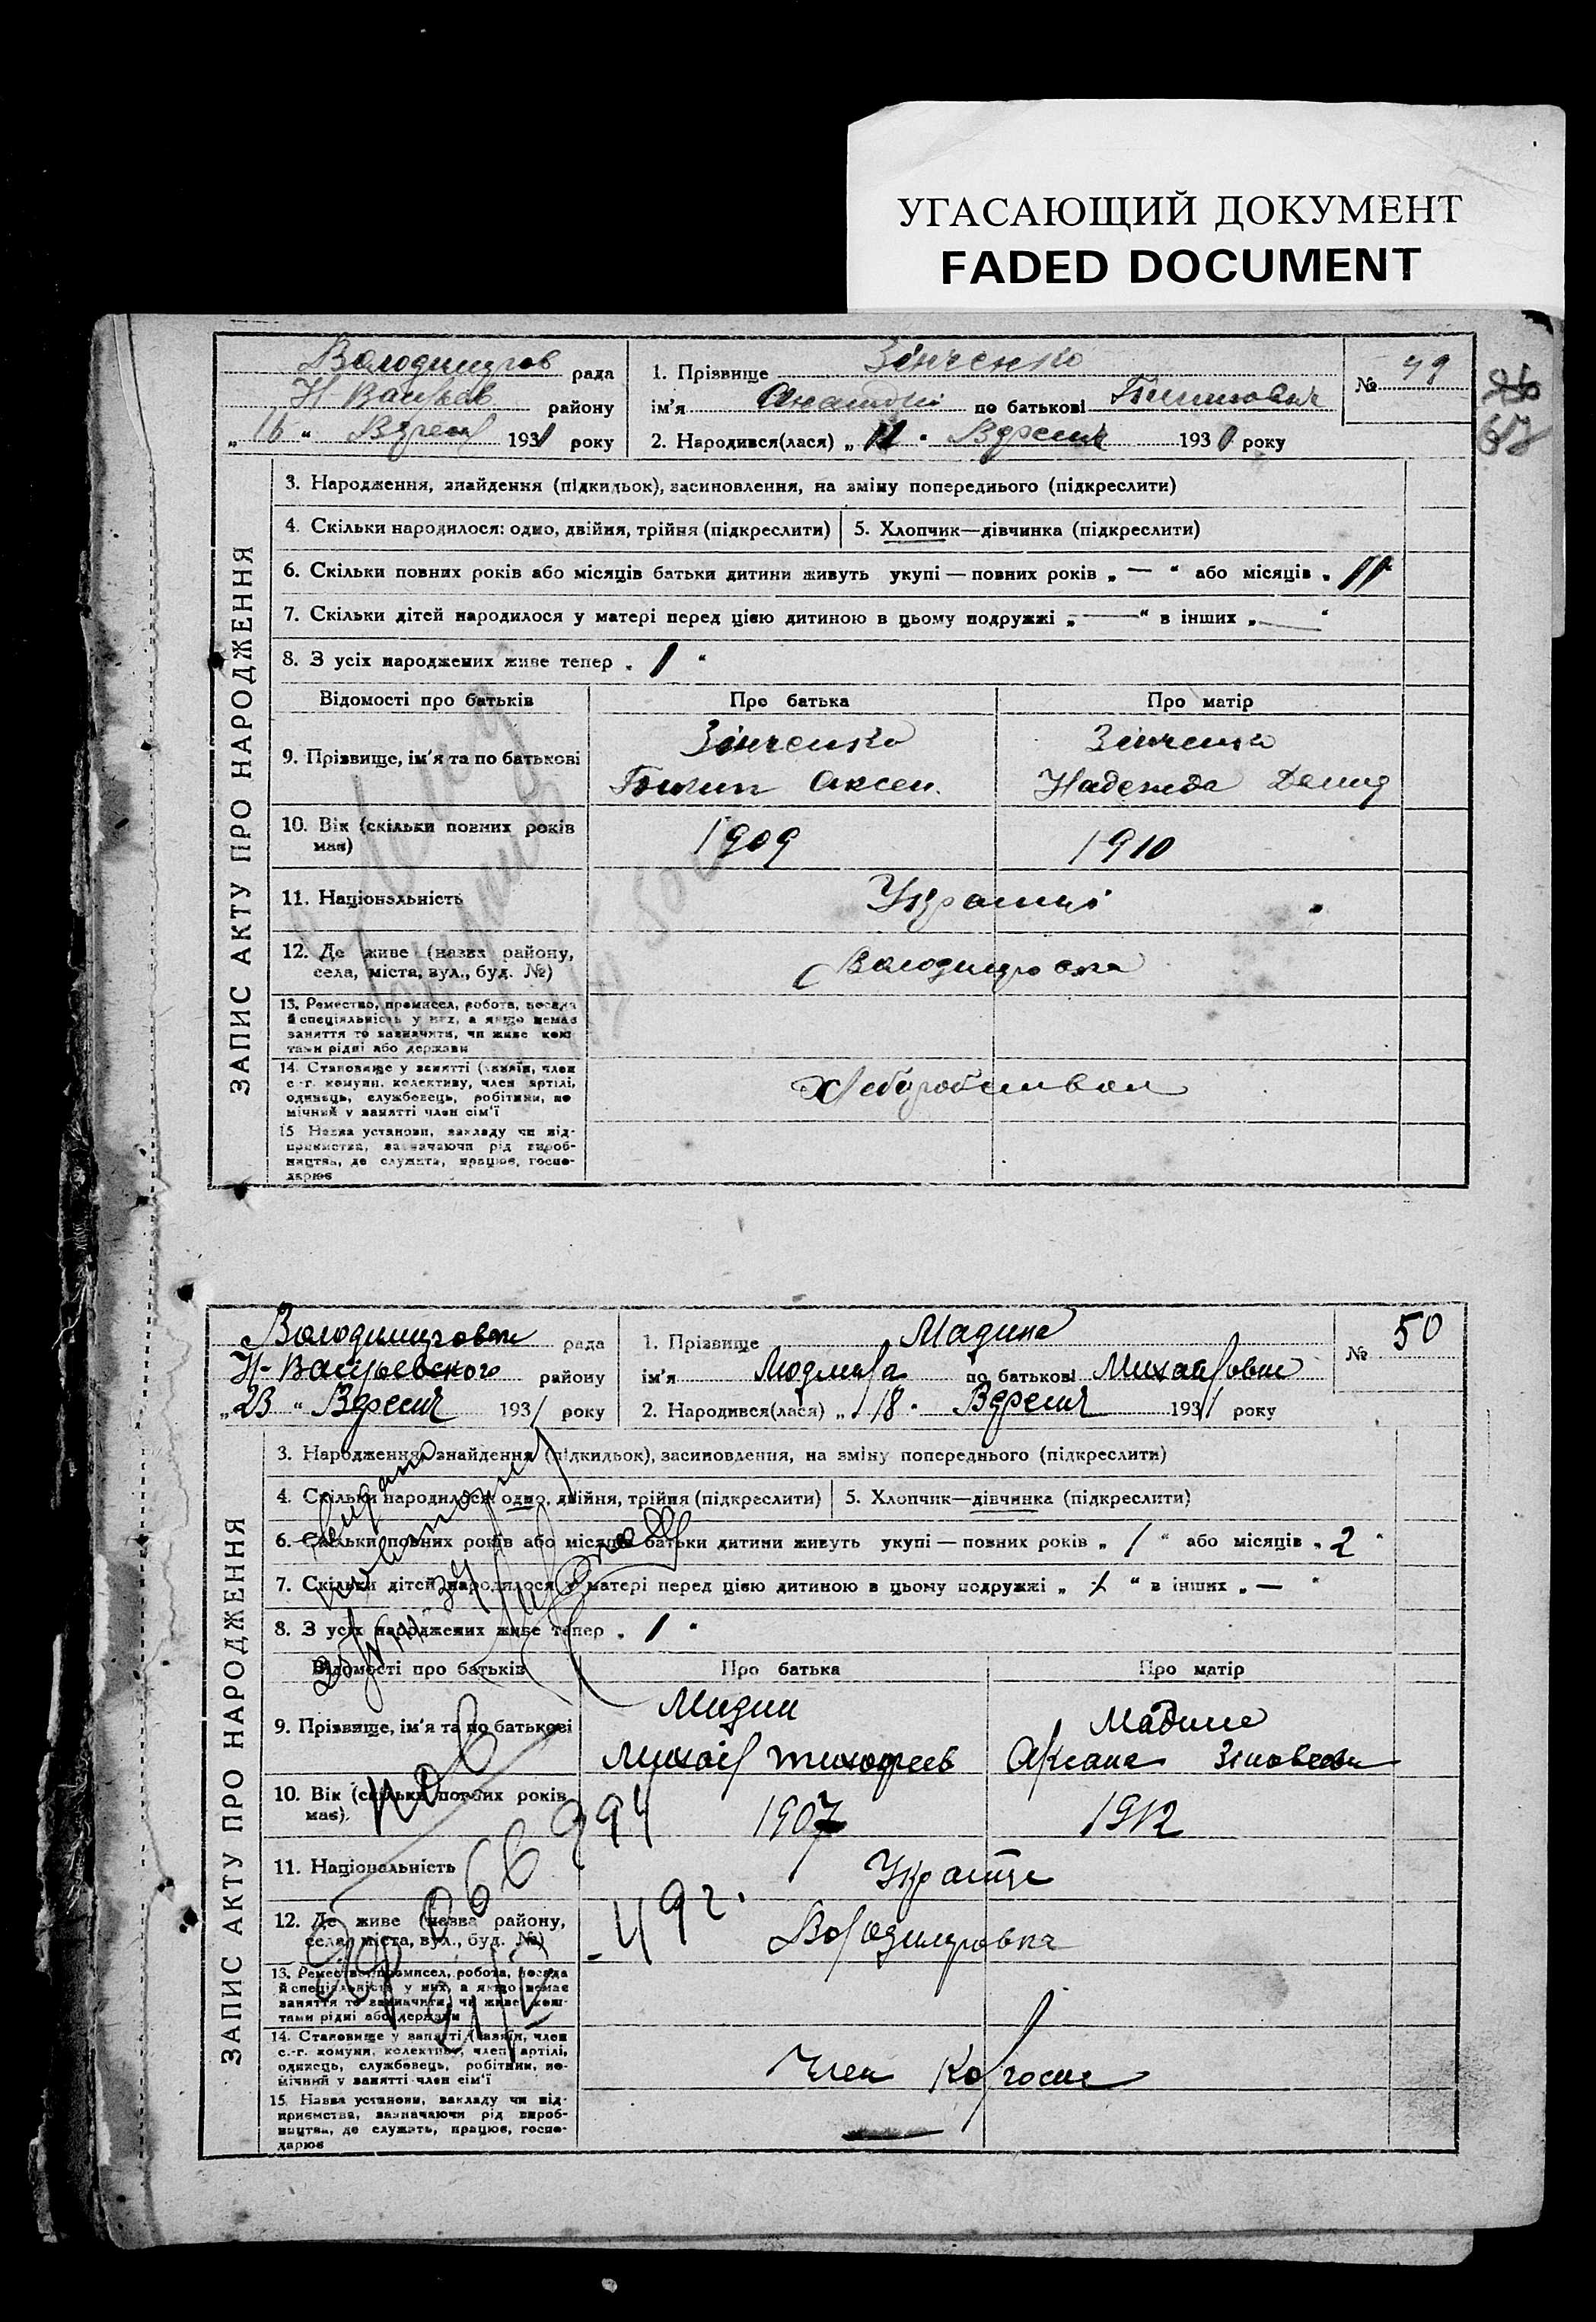 УГАСАЮЩИЙ ДОКУМЕНТ
FADED DOCUMENT
Володимиров рада
Н Васильев району
„ 16 “ Вересня 1931 року
1. Прізвище Зінченко
ім'я Анатолій по батькові
2. Народився(лася) „ 11 " Вересня 1931 року
№ 49
67
ЗАПИС АКТУ ПРО НАРОДЖЕННЯ
3. Народження, знайдення (підкидьок), засиновлення, на зміну попереднього (підкреслити)
4. Скільки народилося: одно, двійня, трійня (підкреслити) 5. Хлопчик—дівчинка (підкреслити)
6. Скільки повних років або місяців батьки дитини живуть укупі — повних років „ — “ або місяців „ 11 "
7. Скільки дітей народилося у матері перед цією дитиною в цьому подружжі „ — “ в інших „ — “
8. З усіх народжених живе тепер „ 1 "
Відомості про батьків Про батька Про матір
9. Прізвище, ім'я та по батькові
Зінченко Зінченко
Аксен. Надежда Демид
10. Вік (скільки повних років має) 1909 1910
11. Національність Українці
12. Де живе (назва району, села, міста, вул., буд. №) с Володимировка
13. Ремество, промисел, робота, посада
й спеціяльність у них, а якщо немає
заняття то зазначити, чи живе кош-
тами рідні або держави
14. Становище у занятті (хазяїн, член
с.-г. комуни, колективу, член артілі,
одинець, службовець, робітник, по-
мічний у занятті член сім'ї
Хлеборобством
15 Назва установи, закладу чи під-
приємства, зазначаючи рід вироб-
ництва, де служить, працює, госпо-
дарює
Володимировск рада
Н-Васильевского району
„ 23 “ Вересня 1931 року
1. Прізвище Мадина
ім'я Людмила по батькові Михайловни
2. Народився(лася) „ 18 " Вересня 1931 року
№ 50
ЗАПИС АКТУ ПРО НАРОДЖЕННЯ
3. Народження, знайдення (підкидьок), засиновлення, на зміну попереднього (підкреслити)
4. Скільки народилося: одно, двійня, трійня (підкреслити) 5. Хлопчик—дівчинка (підкреслити)
6. Скільки повних років або місяців батьки дитини живуть укупі — повних років „ 1 “ або місяців „ 2 "
7. Скільки дітей народилося у матері перед цією дитиною в цьому подружжі „ “ в інших „ — “
8. З усіх народжених живе тепер „ 1 "
Відомості про батьків Про батька Про матір
9. Прізвище, ім'я та по батькові
Мадин Мадина
Михаил Тимофеев Оксана Зиновеевн
10. Вік (скільки повних років має) 1907 1912
994
11. Національність Українці
49 г.
12. Де живе (назва району, села, міста, вул., буд. №) Володимировка
13. Ремество, промисел, робота, посада
й спеціяльність у них, а якщо немає
заняття то зазначити, чи живе кош-
тами рідні або держави
14. Становище у занятті (хазяїн, член
с.-г. комуни, колективу, член артілі,
одинець, службовець, робітник, по-
мічний у занятті член сім'ї
Член колгоспе
15. Назва установи, закладу чи під-
приємства, зазначаючи рід вироб-
ництва, де служить, працює, госпо-
дарює